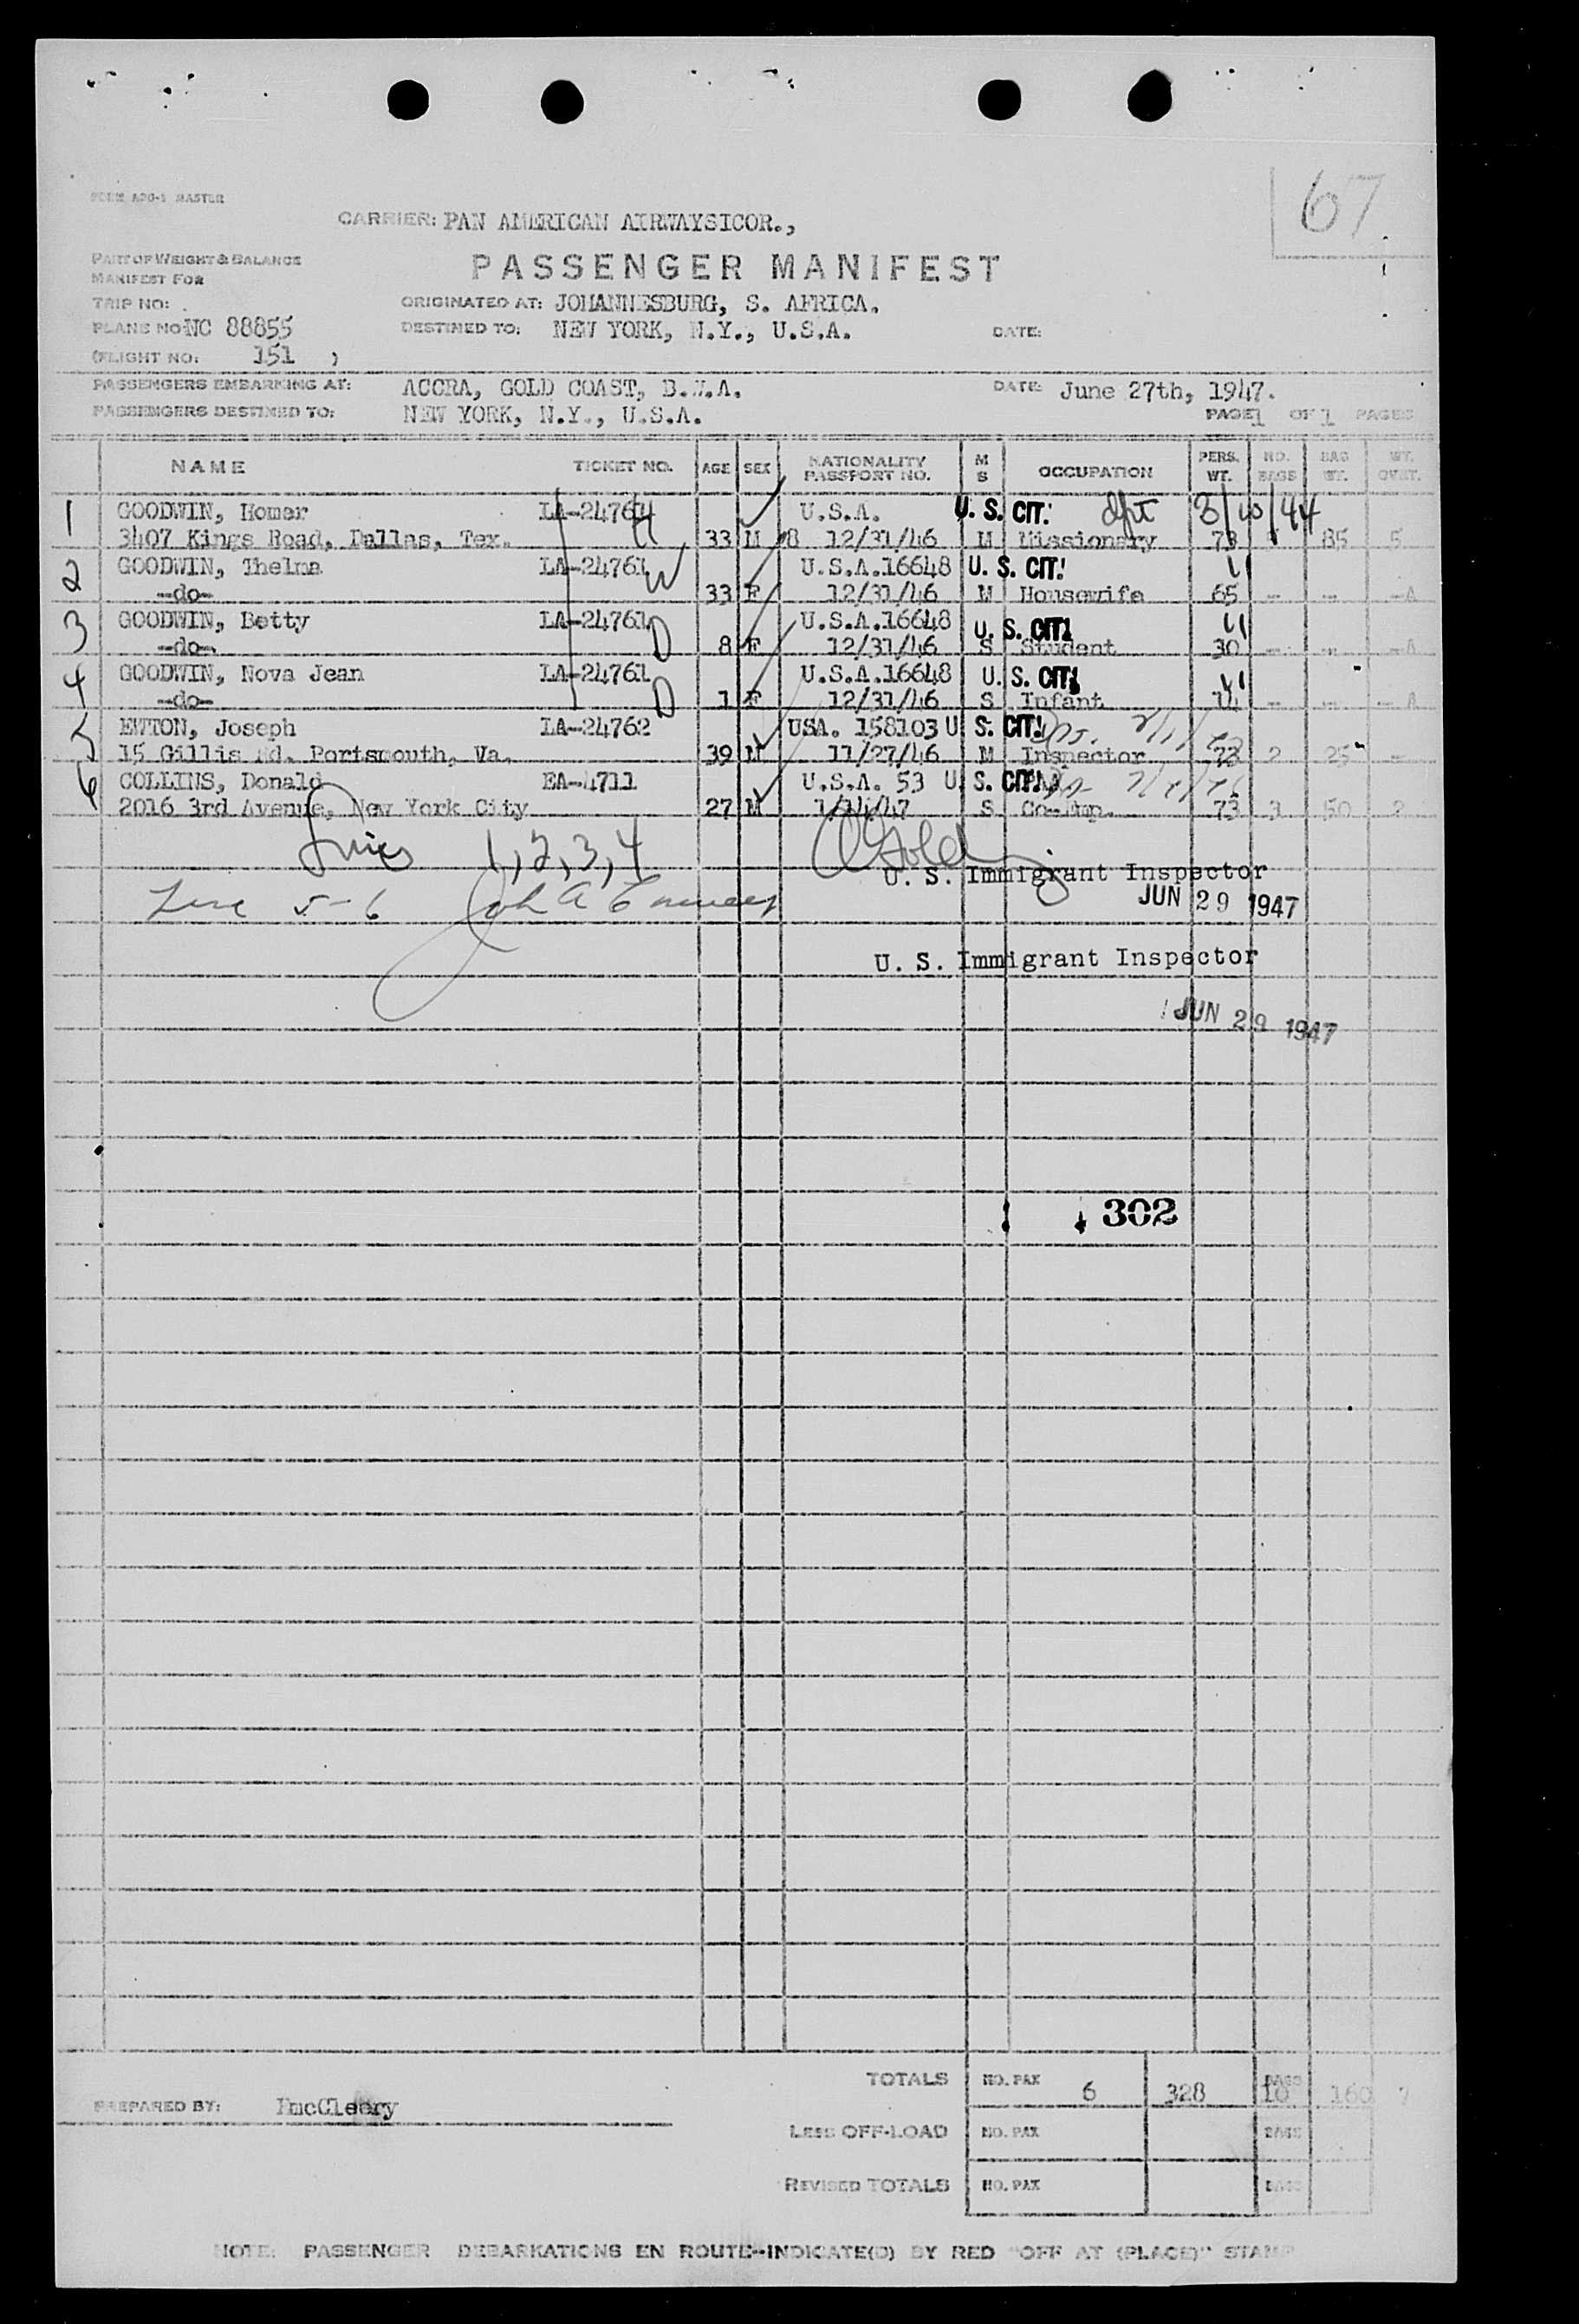 67
FORM ADG-1 MASTER
CARRIER: PAN AMERICAN AIRWAYSICOR.,
PART OF WEIGHT & BALANCE
MANIFEST FOR
PASSENGER MANIFEST
TRIP NO:
ORIGINATED AT: JOHANNESBURG, S. AFRICA.
PLANE NO: NC 88855
DESTINED TO: NEW YORK, N.Y., U.S.A.
DATE:
(FLIGHT NO: 151 )
PASSENGERS EMBARKING AT: ACCRA, GOLD COAST, B.W.A.
DATE: June 27th, 1947.
PASSENGERS DESTINED TO: NEW YORK, N.Y., U.S.A.
PAGE 1 OF 1 PAGES
NAME TICKET NO. AGE SEX NATIONALITY PASSPORT NO. M S OCCUPATION PERS. WT. NO. BAGS BAG WT. WT. OVRT.
1 GOODWIN, Homer LA-24761 H U.S.A. U. S. CIT. dpt 3/10/44
3407 Kings Road, Dallas, Tex. 33 M 8 12/31/46 M Missionary 73 85 5
2 GOODWIN, Thelma LA-24761 W U.S.A.16648 U. S. CIT. "
-do- 33 F 12/31/46 M Housewife 65 - - -A
3 GOODWIN, Betty LA-24761 D U.S.A.16648 U. S. CIT. "
-do- 8 F 12/31/46 S Student 30 - - -A
4 GOODWIN, Nova Jean LA-24761 D U.S.A.16648 U. S. CIT. "
-do- 1 F 12/31/46 S Infant 14 - - -A
5 EWTON, Joseph LA-24762 USA. 158103 U. S. CIT.
15 Gillis Rd. Portsmouth, Va. 39 M 11/27/46 M Inspector 73 2 25 -
6 COLLINS, Donald EA-4711 U.S.A. 53 U. S. CIT.
2016 3rd Avenue, New York City 27 M 1/14/47 S Co-Emp. 73 3 50 2
Lines 1,2,3,4
U. S. Immigrant Inspector
JUN 29 1947
Line 5-6 John A
U. S. Immigrant Inspector
JUN 29 1947
302
TOTALS NO. PAX 6 328 BAGS 10 160 7
PREPARED BY: EmcCleary
LESS OFF-LOAD NO. PAX BAGS
REVISED TOTALS NO. PAX BAGS
NOTE: PASSENGER DEBARKATIONS EN ROUTE--INDICATE(D) BY RED "OFF AT (PLACE)" STAMP